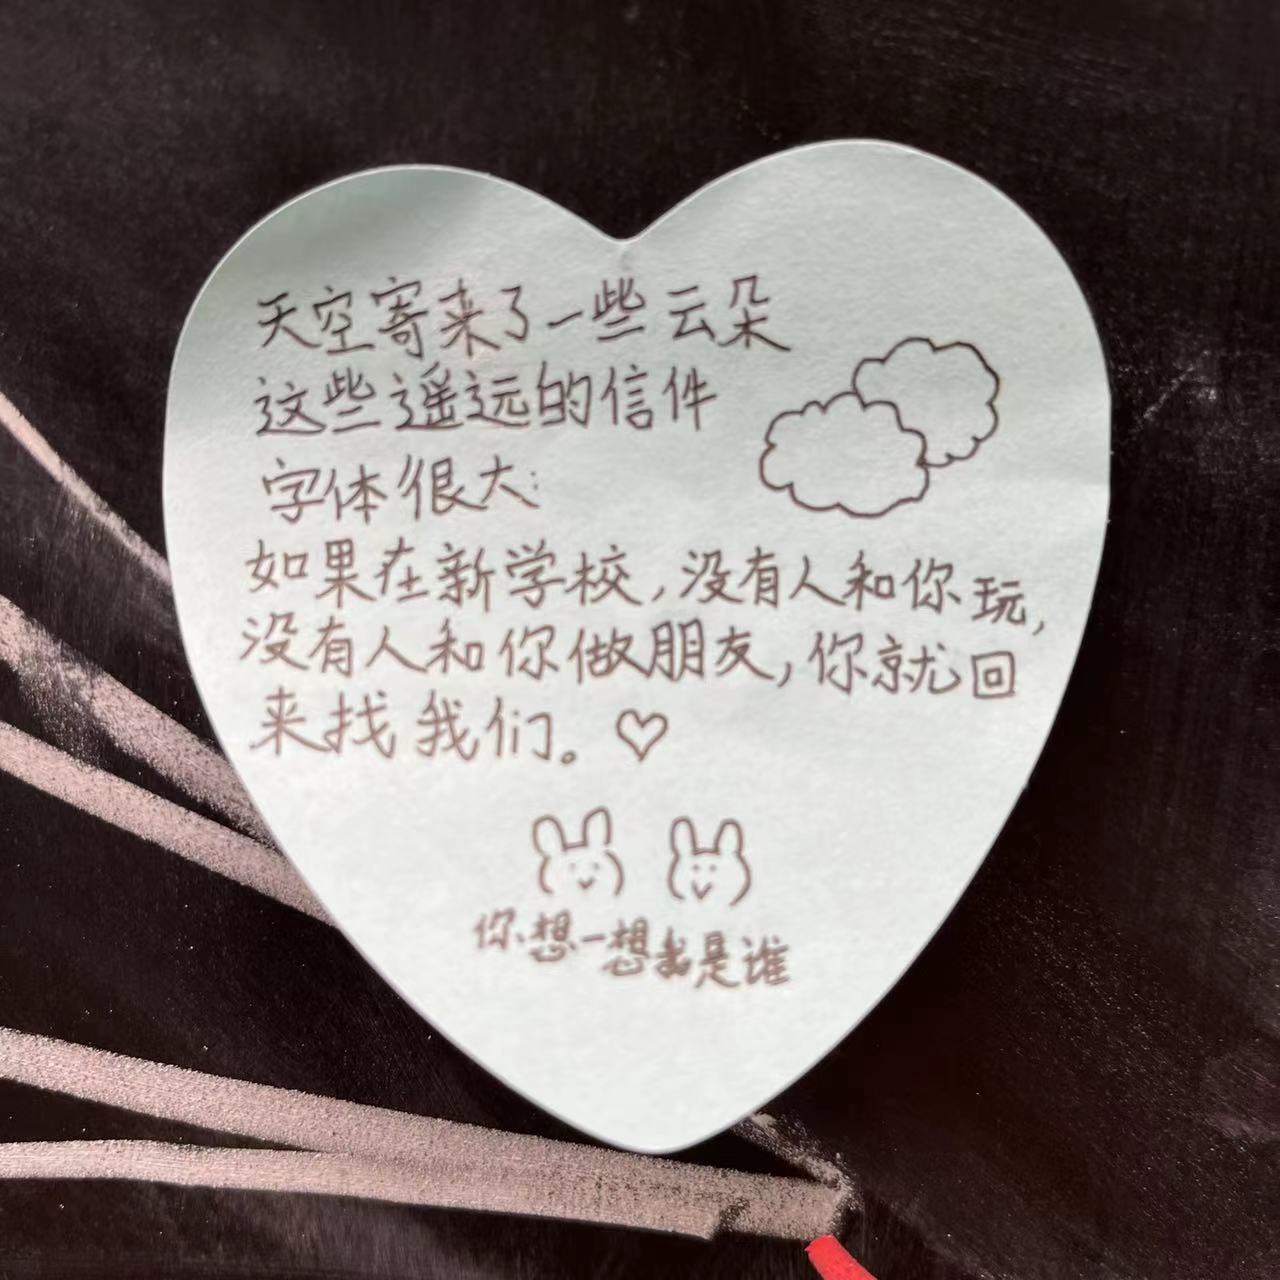 天空寄来了一些云朵
这些遥远的信件
字体很大:
如果在新学校,没有人和你玩,
没有人和你做朋友,你就回
来找我们。♡
你想一想我是谁